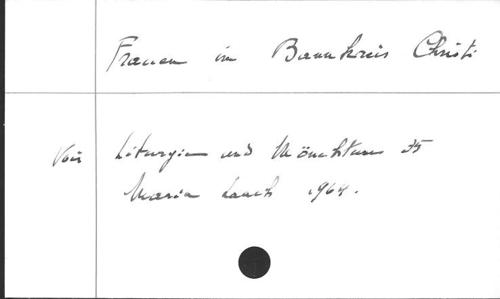 Frauen im Bannkreis Christi
Voir Liturgie und Mönchtum 35
Maria Laach 1964.